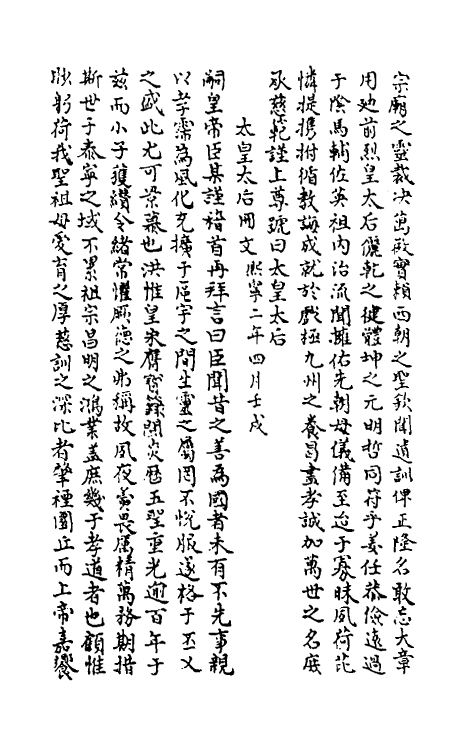 宗廟之靈裁決萬政實頼兩朝之聖欽聞遺訓俾正隆名敢忘大章
用廸前烈皇太后儷乾之健體坤之元明哲同符乎姜任恭儉遠過
于陰馬輔佐英祖内治流聞擁佑先朝母儀備至迨于寡昧夙荷芘
憐提携拊循教誨成就於戲極九州之養曷盡孝誠加萬世之名庶
承慈範謹上尊號曰太皇太后
太皇太后冊文熙寧二年四月壬戌
嗣皇帝臣某謹稽首再拜言曰臣聞昔之善為國者未有不先事親
以孝霈為風化充擴于區宇之間生靈之屬罔不悅服遂格于丕乂
之盛此尤可景慕也洪惟皇宋膺寳籙開炎歴五聖重光逾百年于
兹而小子獲纘令緒常懼厥德之弗彌故夙夜夤畏厲精萬務期措
斯世于泰寧之域不累祖宗昌明之鴻業蓋庶幾于孝道者也顧惟
眇躬荷我聖祖母愛育之厚慈訓之深比者肇禋圜丘而上帝嘉饗